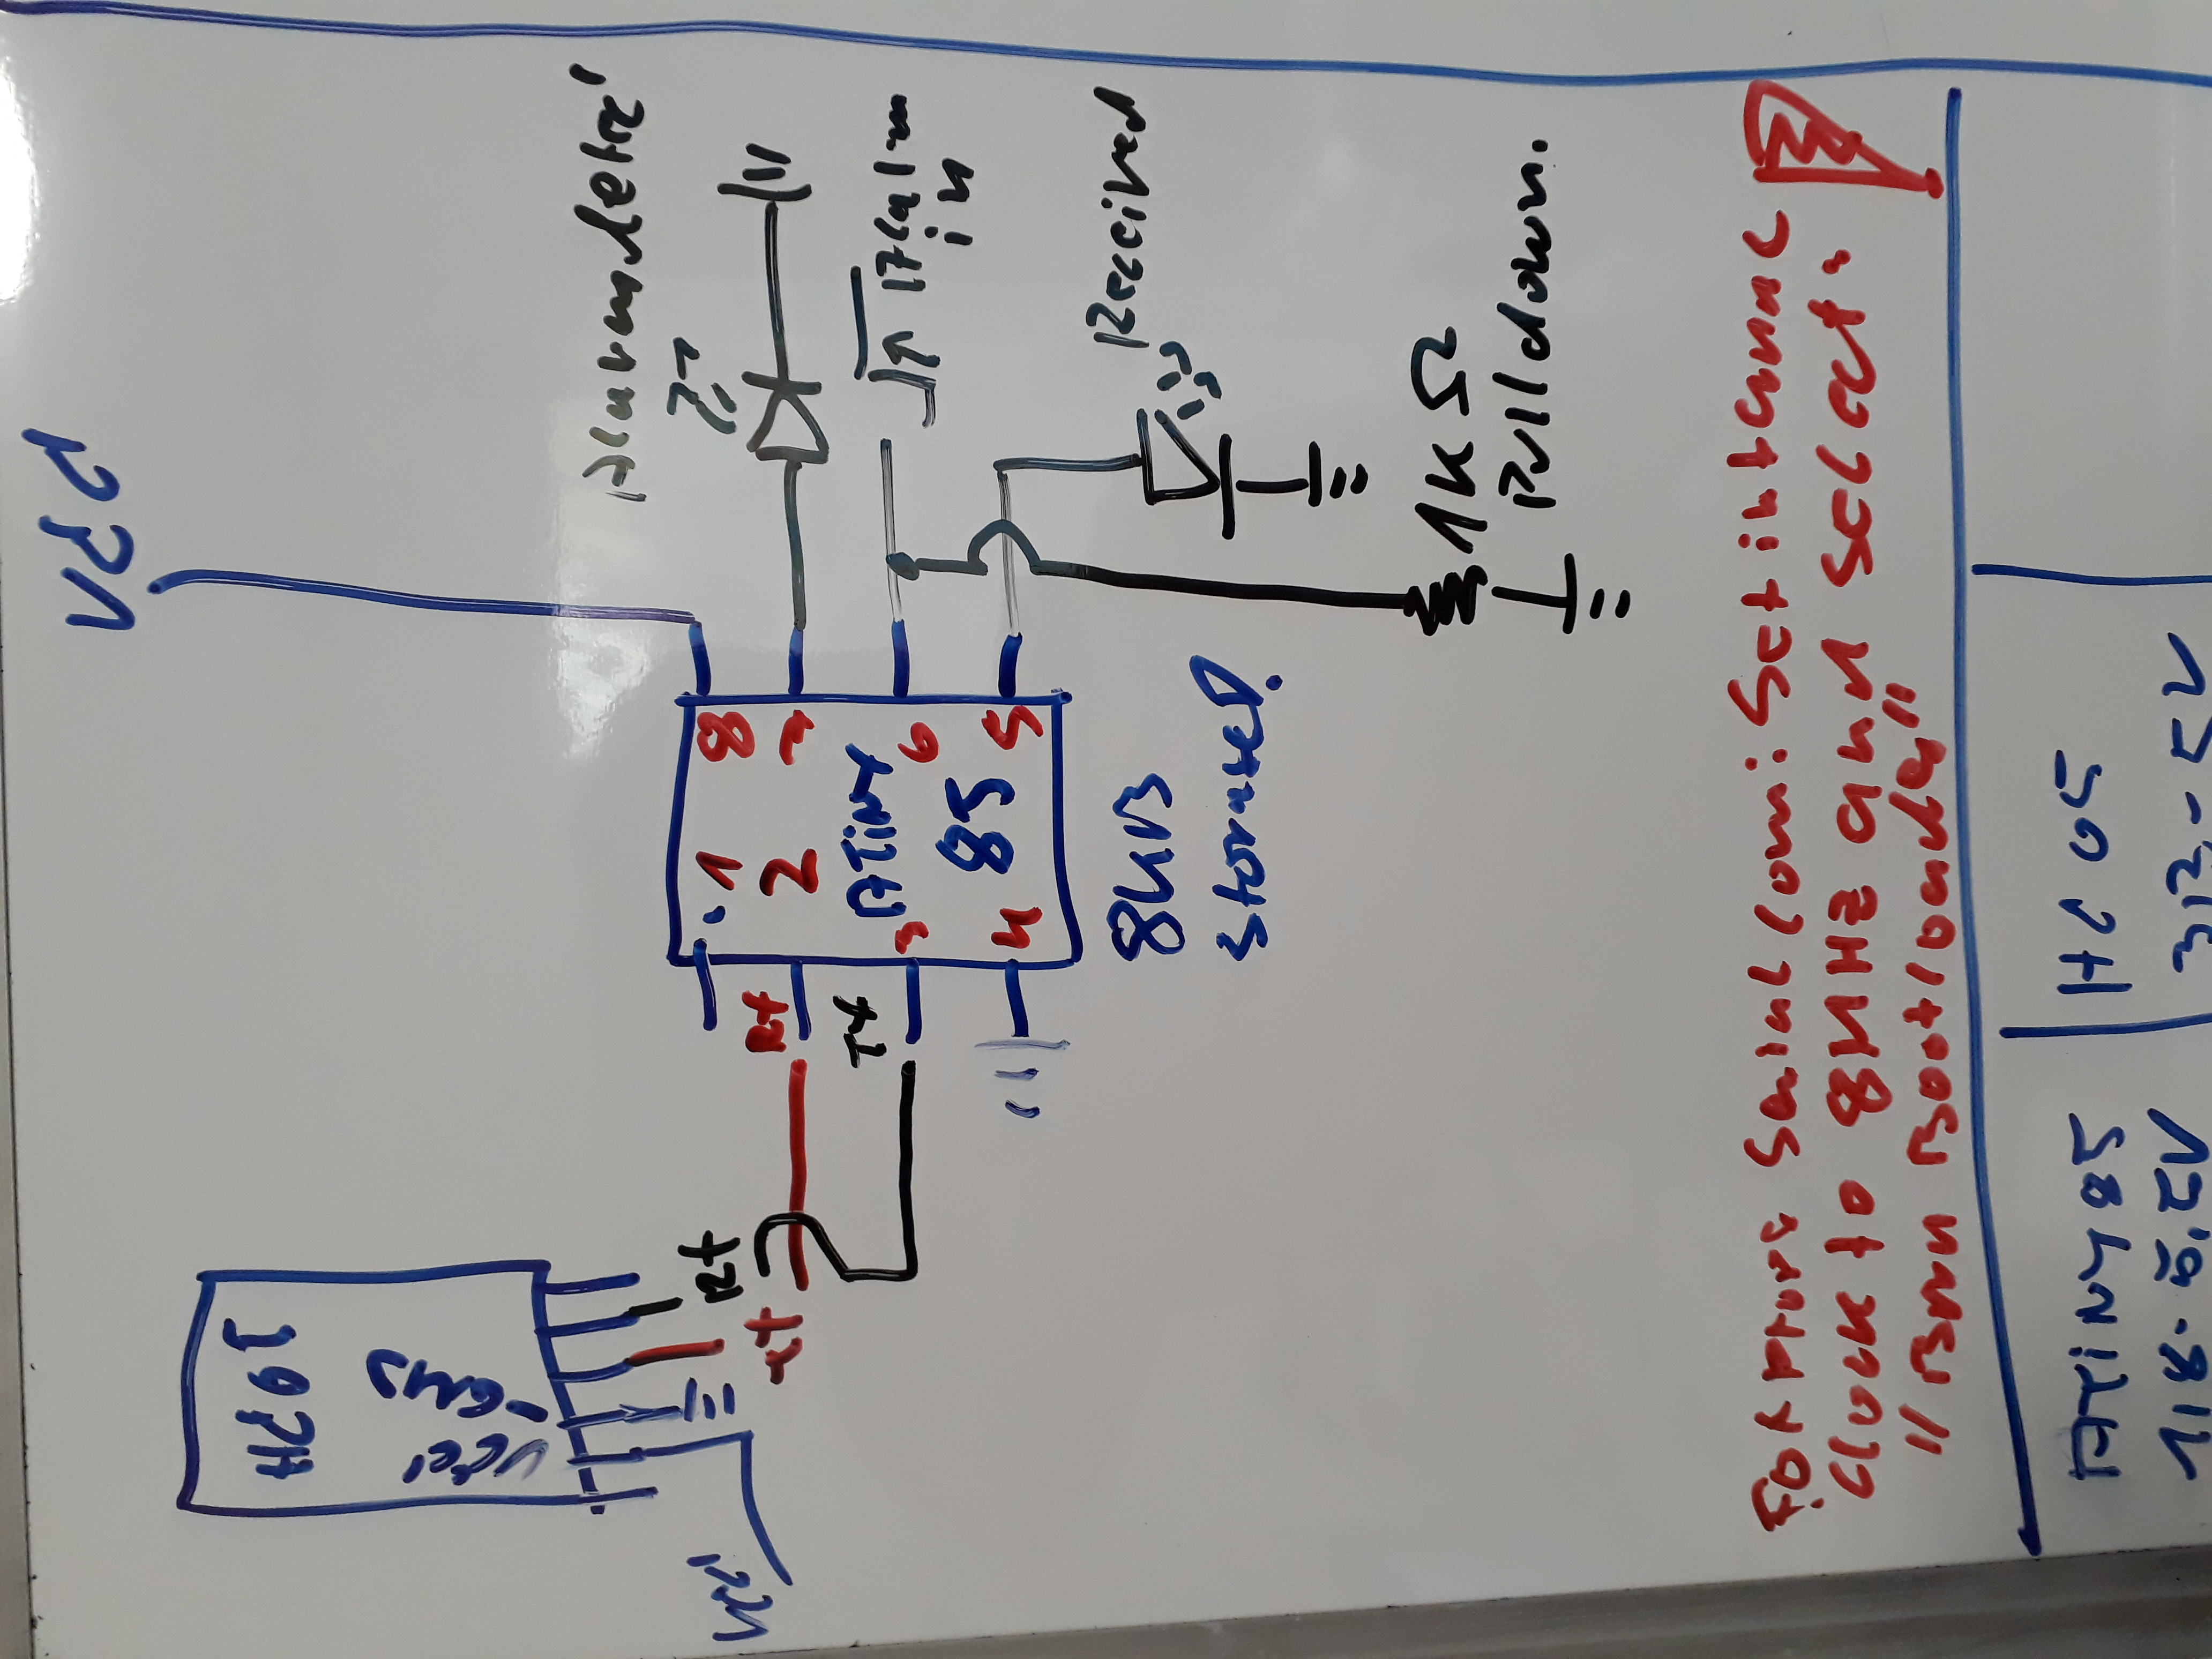 VCC
HC05
VCC
GND
VCC
Rx
Tx
Rx
Tx
1
2
3
4
8
7
6
5
ATiNY
85
8KB
Storage!
Alarm in
Received
1K Ω
Pull down.
For proper Serial Com: Set internal
Clock to 8MHz and Select:
"Burn Bootloader"
ATiNY85
1,8-5,5V
HC 05
3,3-5V